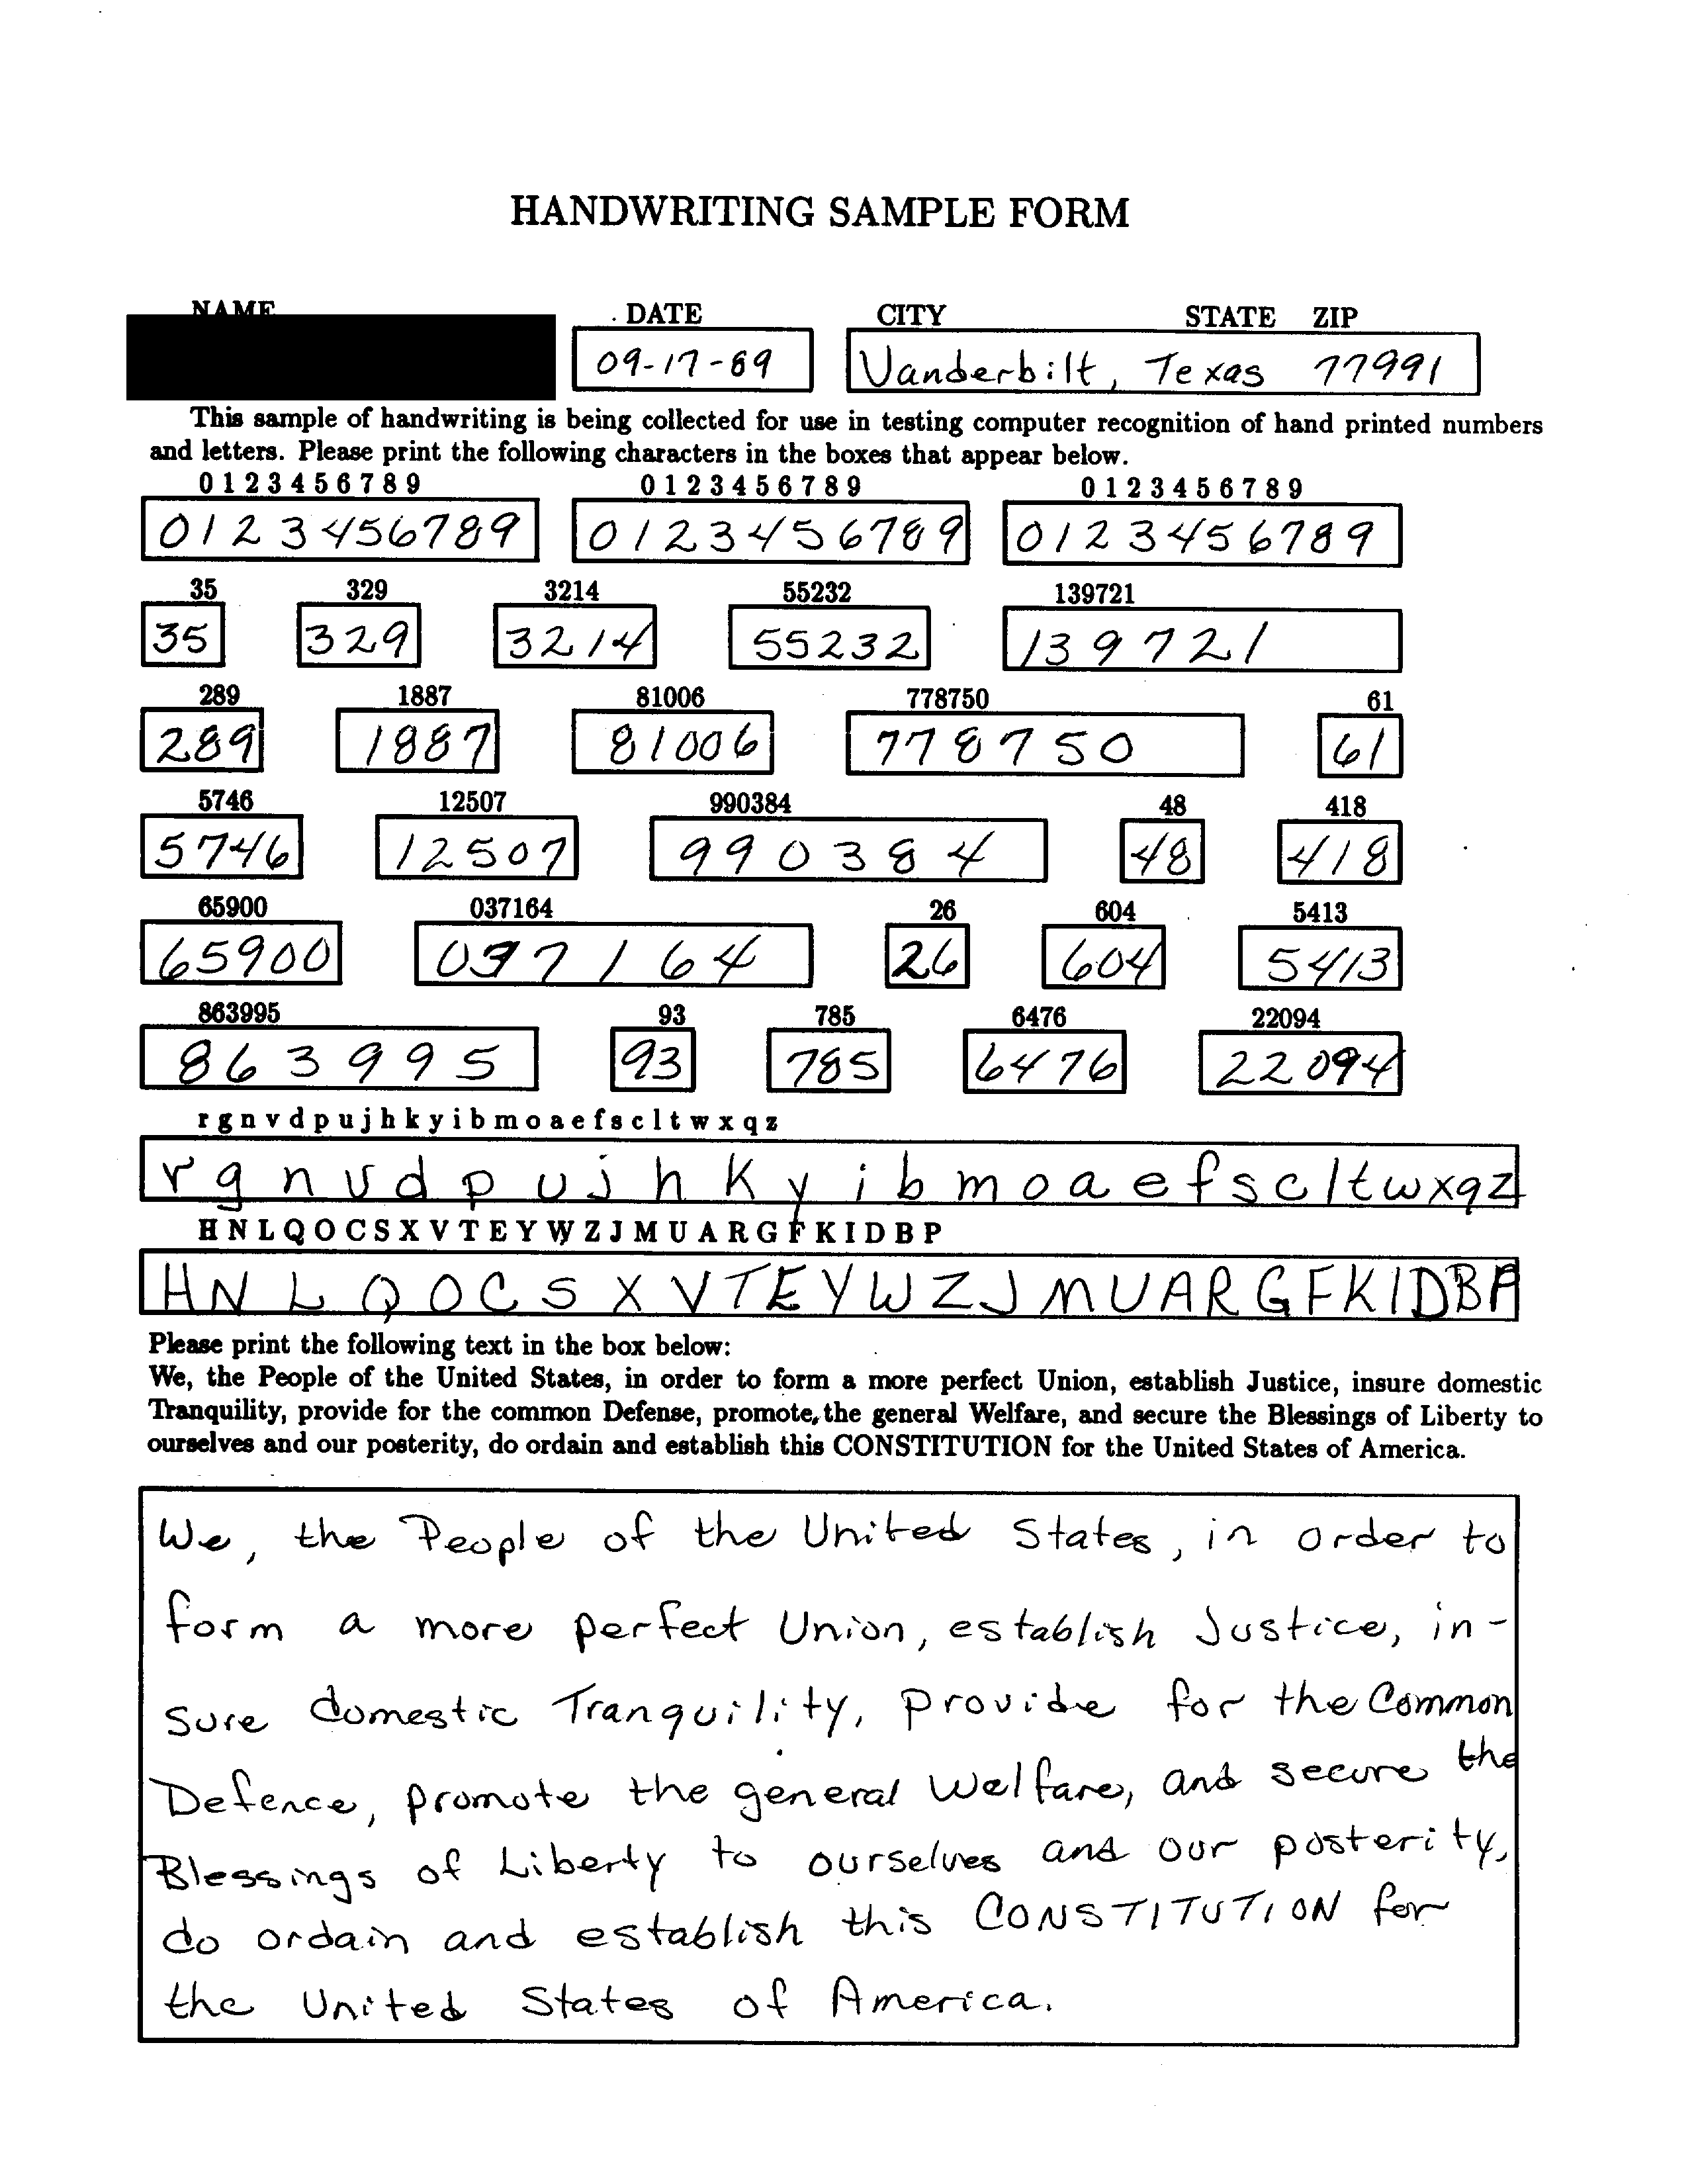 HANDWRITING SAMPLE FORM
NAME DATE CITY STATE ZIP
09-17-89 Vanderbilt, Texas 77991
This sample of handwriting is being collected for use in testing computer recognition of hand printed numbers
and letters. Please print the following characters in the boxes that appear below.
0 1 2 3 4 5 6 7 8 9 0 1 2 3 4 5 6 7 8 9 0 1 2 3 4 5 6 7 8 9
0123456789 0123456789 0123456789
35 329 3214 55232 139721
35 329 3214 55232 139721
289 1887 81006 778750 61
289 1887 81006 778750 61
5746 12507 990384 48 418
5746 12507 990384 48 418
65900 037164 26 604 5413
65900 037164 26 604 5413
863995 93 785 6476 22094
863995 93 785 6476 22094
r g n v d p u j h k y i b m o a e f s c l t w x q z
r g n v d p u j h k y i b m o a e f s c l t w x q z
H N L Q O C S X V T E Y W Z J M U A R G F K I D B P
H N L Q O C S X V T E Y W Z J M U A R G F K I D B P
Please print the following text in the box below:
We, the People of the United States, in order to form a more perfect Union, establish Justice, insure domestic
Tranquility, provide for the common Defense, promote, the general Welfare, and secure the Blessings of Liberty to
ourselves and our posterity, do ordain and establish this CONSTITUTION for the United States of America.
We, the People of the United States, in order to
form a more perfect Union, establish Justice, in-
sure domestic Tranquility, provide for the Common
Defence, promote the general Welfare, and secure the
Blessings of Liberty to ourselves and our posterity,
do ordain and establish this CONSTITUTION for
the United States of America.